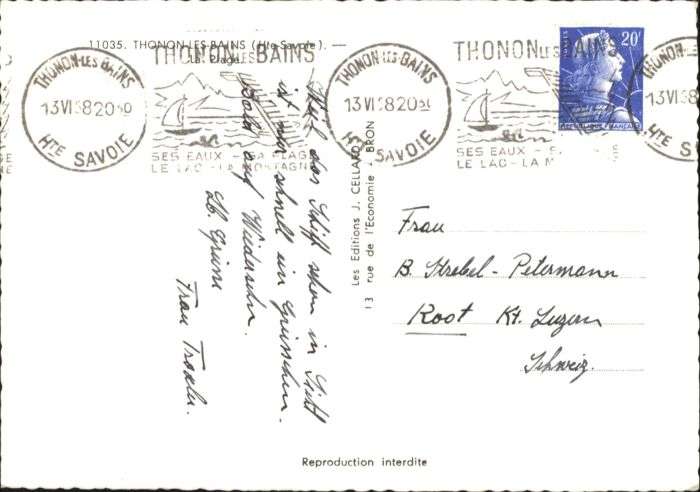 11035. THONON-LES-BAINS (Hte-Savoie). —
La Plage
THONON LES BAINS
THONON-LES-BAINS
13 VI 58 20 50
HTE SAVOIE
SES EAUX - SA PLAGE
LE LAC - LA MONTAGNE
THONON-LES-BAINS
13 VI 58 20
HTE SAVOIE
THONON LES BAINS
SES EAUX - S
LE LAC - LA M
20F
RÉPUBLIQUE FRANÇAISE
THONON-LES-BAINS
13 VI 58
HTE SAVOIE
das Schiff schon in Sicht
ist nur schnell ein Grüsschen.
Bald auf Wiedersehn.
Lb. Grüsse
Frau Troxler.
Les Editions J. CELLARD
13 rue de l'Economie J. BRON
Frau
B. Strebel-Petermann
Root Kt. Luzern
Schweiz.
Reproduction interdite